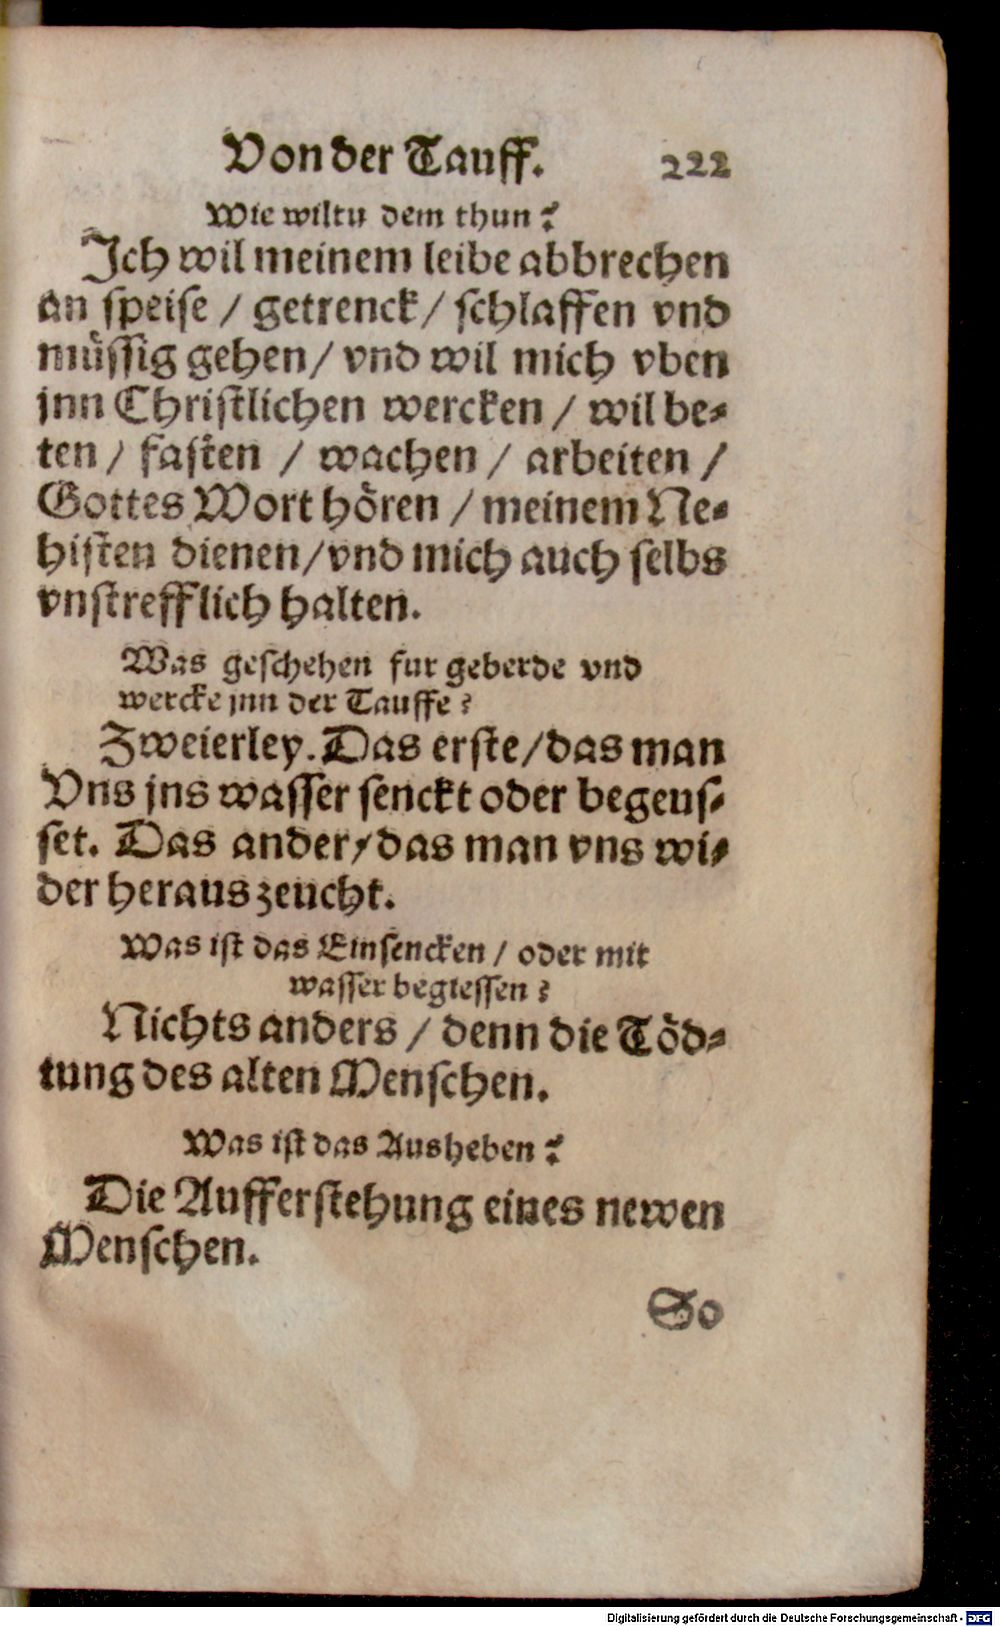 Von der Tauff. 222
Wie wiltu dem thun?
Ich wil meinem leibe abbrechen
an speise / getrenck / schlaffen vnd
müssig gehen / vnd wil mich vben
jnn Christlichen wercken / wil be-
ten / fasten / wachen / arbeiten /
Gottes Wort hören / meinem Ne-
histen dienen / vnd mich auch selbs
vnstrefflich halten.
Was geschehen fur geberde vnd
wercke jnn der Tauffe?
Zweierley. Das erste / das man
Vns jns wasser senckt oder begeus-
set. Das ander / das man vns wi-
der heraus zeucht.
Was ist das Einsencken / oder mit
wasser begiessen?
Nichts anders / denn die Töd-
tung des alten Menschen.
Was ist das Ausheben?
Die Aufferstehung eines newen
Menschen.
So
Digitalisierung gefördert durch die Deutsche Forschungsgemeinschaft - DFG